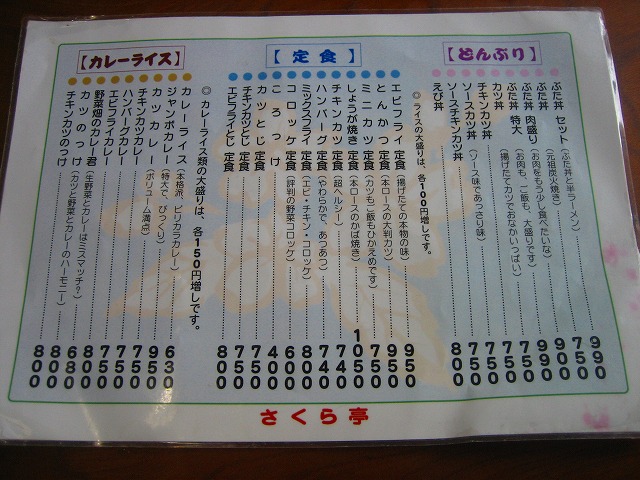 【どんぶり】
ぶた丼 セット (ぶた丼と半ラーメン) 990
ぶた丼 (元祖炭火焼き) 750
ぶた丼 肉盛り (お肉をもう少し食べたいな) 900
ぶた丼 特大 (お肉も、ご飯も、大盛りです) 990
カツ丼 (揚げたてカツでおなかいっぱい) 750
チキンカツ丼 700
ソースカツ丼 (ソース味であっさり味) 750
ソースチキンカツ丼 750
えび丼 800
【定食】
◎ライスの大盛りは、各100円増しです。
エビフライ 定食 (揚げたての本物の味) 950
とんかつ 定食 (本ロースの大判カツ) 950
ミニカツ 定食 (カツもご飯もひかえめです) 750
しょうが焼き 定食 (本ロースのかば焼き) 1050
チキンカツ 定食 (超ヘルシー) 740
ハンバーグ 定食 (やわらかで、あつあつ) 740
ミックスフライ 定食 (エビ・チキン・コロッケ) 800
コロッケ 定食 (評判の野菜コロッケ) 600
ころっけ 400
カツとじ 定食 750
チキンカツとじ 定食 750
エビフライとじ 定食 800
【カレーライス】
◎カレーライス類の大盛りは、各150円増しです。
カレーライス (本格派、ピリカラカレー) 630
ジャンボカレー (特大で、びっくり) 950
カツカレー (ボリューム満点) 750
チキンカツカレー 750
ハンバーグカレー 750
エビフライカレー 750
野菜畑のカレー君 (生野菜とカレーはミスマッチ?) 800
カツのっけ (カツと野菜とカレーのハーモニー) 680
チキンカツのっけ 800
さくら亭